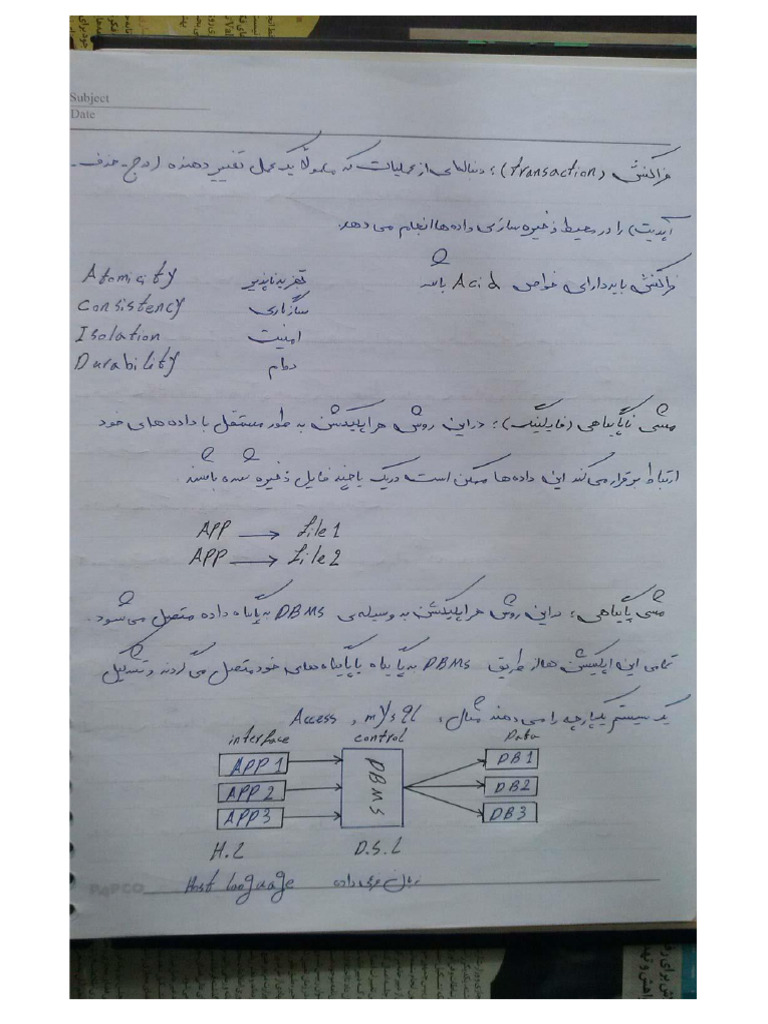 Subject
Date
فراکنش (transaction): دنباله‌ای از عملیات که معمولاً یک عمل تغییر دهنده (درج - حذف -
آپدیت) را در محیط ذخیره سازی داده ها انجام می دهد.
فراکنش باید دارای خواص Acid باشد
Atomicity تجزیه ناپذیر
Consistency سازگاری
Isolation امنیت
Durability دوام
مشی ناپایگاهی (فایلینگ): در این روش هر اپلیکیشن به طور مستقل با داده های خود
ارتباط برقرار می کند این داده ها ممکن است در یک یا چند فایل ذخیره شده باشند.
APP → file 1
APP → file 2
مشی پایگاهی: در این روش هر اپلیکیشن به وسیله ی DBMS به پایگاه داده متصل می شود.
تمامی این اپلیکیشن ها از طریق DBMS به پایگاه یا پایگاه های خود متصل می گردند و تشکیل
یک سیستم یکپارچه را می دهند مثال: Access , mysql
interface control Data
APP 1 DBMS DB1
APP 2 DB2
APP 3 DB3
H.L D.S.L
Host language زبان داده
PAPCO